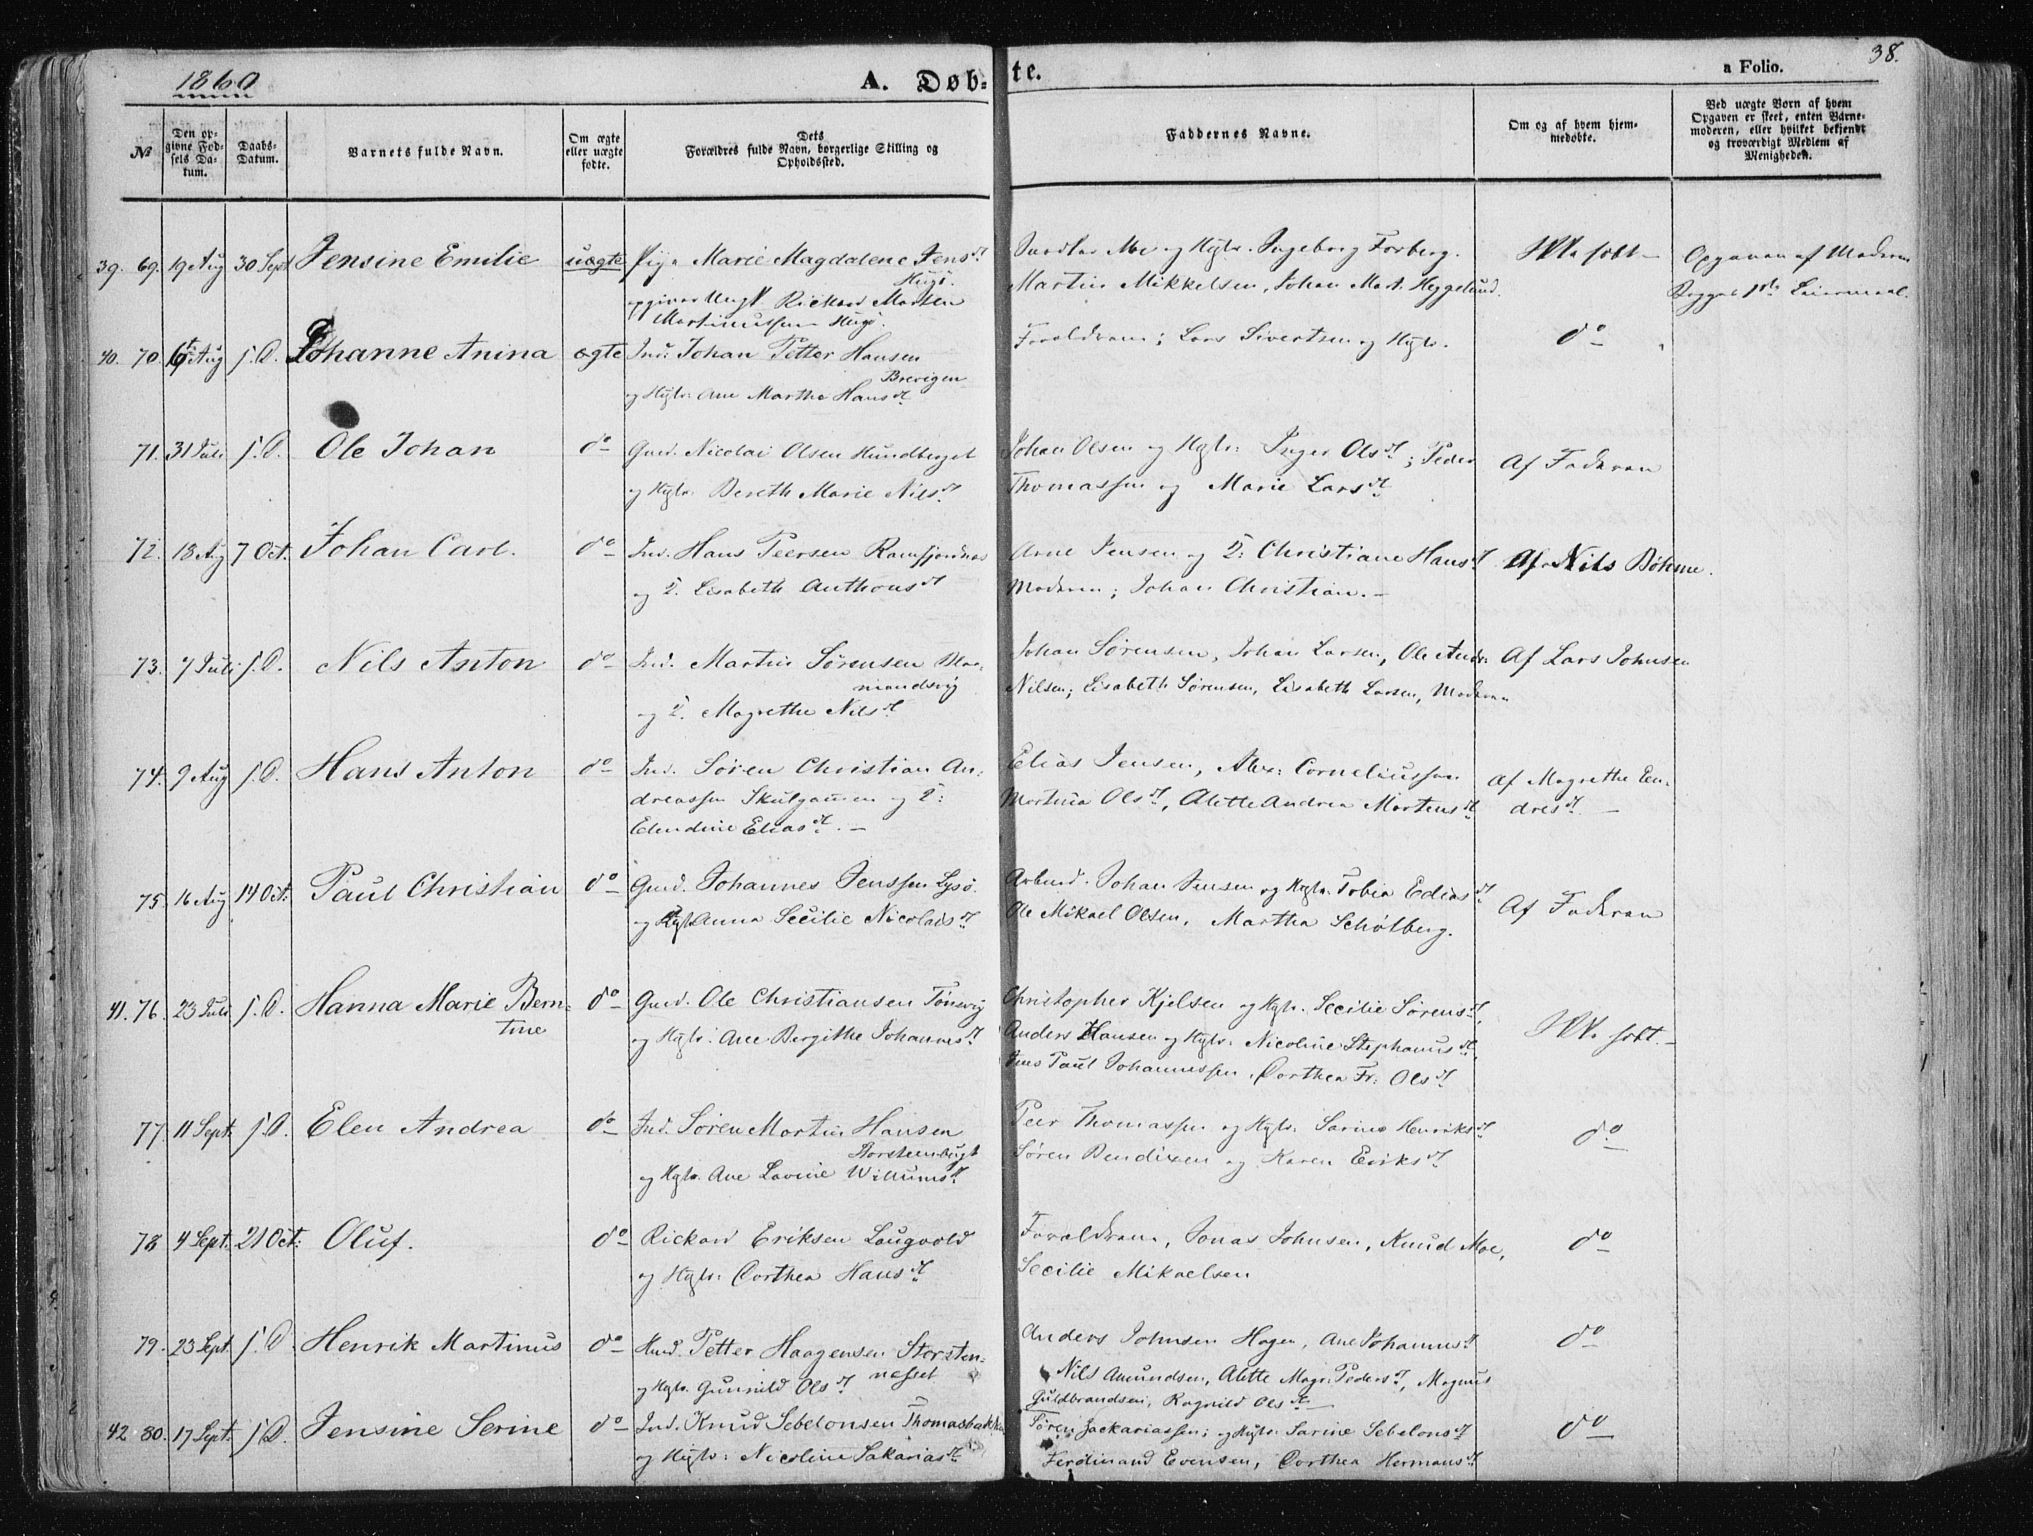 1860
A. Døbte.
a Folio.
38.
№
Den opgivne Fødsels Datum.
Daabs-Datum.
Barnets fulde Navn.
Om ægte eller uægte fødte.
Dets Forældres fulde Navn, borgerlige Stilling og Opholdssted.
Faddernes Navne.
Om og af hvem hjemmedøbte.
Ved uægte Børn af hvem Opgaven er skeet, enten Barnemoderen, eller hvilket bekjendt og troværdigt Medlem af Menigheden.
39. 69. 19 Aug 30 Sept Jensine Emilie uægte Pige Marie Magdalene Jensdt
opgiver Ungk. Rickard Morten
Martinussen
og Hstr. Ingeborg Forberg.
Martin Mikkelsen, Johan Mart. Heggelund.
Opgaven af Moderen
Begges 1ste Leiermaal.
40. 70. 6 Aug s. D. Johanne Anina ægte Ind: Johan Petter Hansen
Brevigen
og Hstr: Ane Martha Hansdt
Forældrene; Lars Sivertsen og Hstr.
do
71. 31 Juli s. D. Ole Johan do Gmd. Nicolai Olsen Hundberget
og Hstr. Bereth Marie Nilsdt
Johan Olsen og Hstr: Inger Olsdt; Peder
Thomassen og Marie Larsdt
Af Faderen
72. 18 Aug 7 Oct. Johan Carl. do Ind. Hans Peersen Ramfjordnes
og H. Lisabeth Anthonsdt
Arne Jensen og H: Christiane Hansdt
Moderen; Johan Christian.
Af Nils Bøhme.
73. 7 Juli s. D. Nils Anton do Ind. Martin Sørensen
og H. Magrethe Nilsdt
Johan Sørensen, Johan Larsen, Ole Andr:
Nilsen; Lisabeth Sørensen, Lisabeth Larsen, Moderen
Af Lars Johnsen
74. 9 Aug s. D. Hans Anton do Ind. Søren Christian An-
dreassen Skulgammen og H:
Elendine Eliasdt
Elias Jensen, Alex: Corneliussen
Martina Olsdt, Alette Andrea Mortensdt
af Magrethe En-
dresdt
75. 16 Aug 14 Oct: Paul Christian do Gmd. Johannes Jenssen Lysø.
og Hstr Anna Secilie Nicolaisdt
Johan Jensen og Hstr. Tobia Ediasdt
Ole Mikael Olsen, Martha Schølberg.
Af Faderen
41. 76. 23 Juli s. D. Hanna Marie Bern-
tine
do Gmd. Ole Christiansen Tønsvig
og Hstr: Ane Bergithe Johannesdt
Christopher Kjelsen og Hstr. Secilie Sørensdt,
Anders Hansen og Hstr: Nicoline Stephanusdt,
Jens Paul Johannessen, Dorthea Fr: Olsdt
77. 11 Sept. s. D. Elen Andrea do Ind. Søren Martin Hansen
og Hstr. Ane Lovine Willumsdt
Peer Thomassen og Hstr: Sarine Henriksdt
Søren Bendixen og Karen Eriksdt
do
78. 4 Sept. 21 Oct: Oluf. do Rickard Eriksen Laugvold
og Hstr: Dorthea Hansdt
Forældrene, Jonas Johnsen, Knud Moe,
Secilie Mikaelsen
do
79. 23 Sept. s. D. Henrik Martinus do Petter Haagensen Storsten-
nesset
og Hstr. Gunnild Olsdt
Anders Johnsen Hagen, Ane Johannesdt
Nils Amundsen, Alette Magr: Pedersdt, Magnus
Guldbrandsen, Ragnild Olsdt
do
42. 80. 17 Sept. s. D. Jensine Serine do Ind. Knud Sebelonsen Thomasbakken
og Hstr: Nicoline Sakariasdt
Søren Jackariassen; og Hstr. Sarine Sebelonsdt
Ferdinand Evensen, Dorthea Hermansdt
do